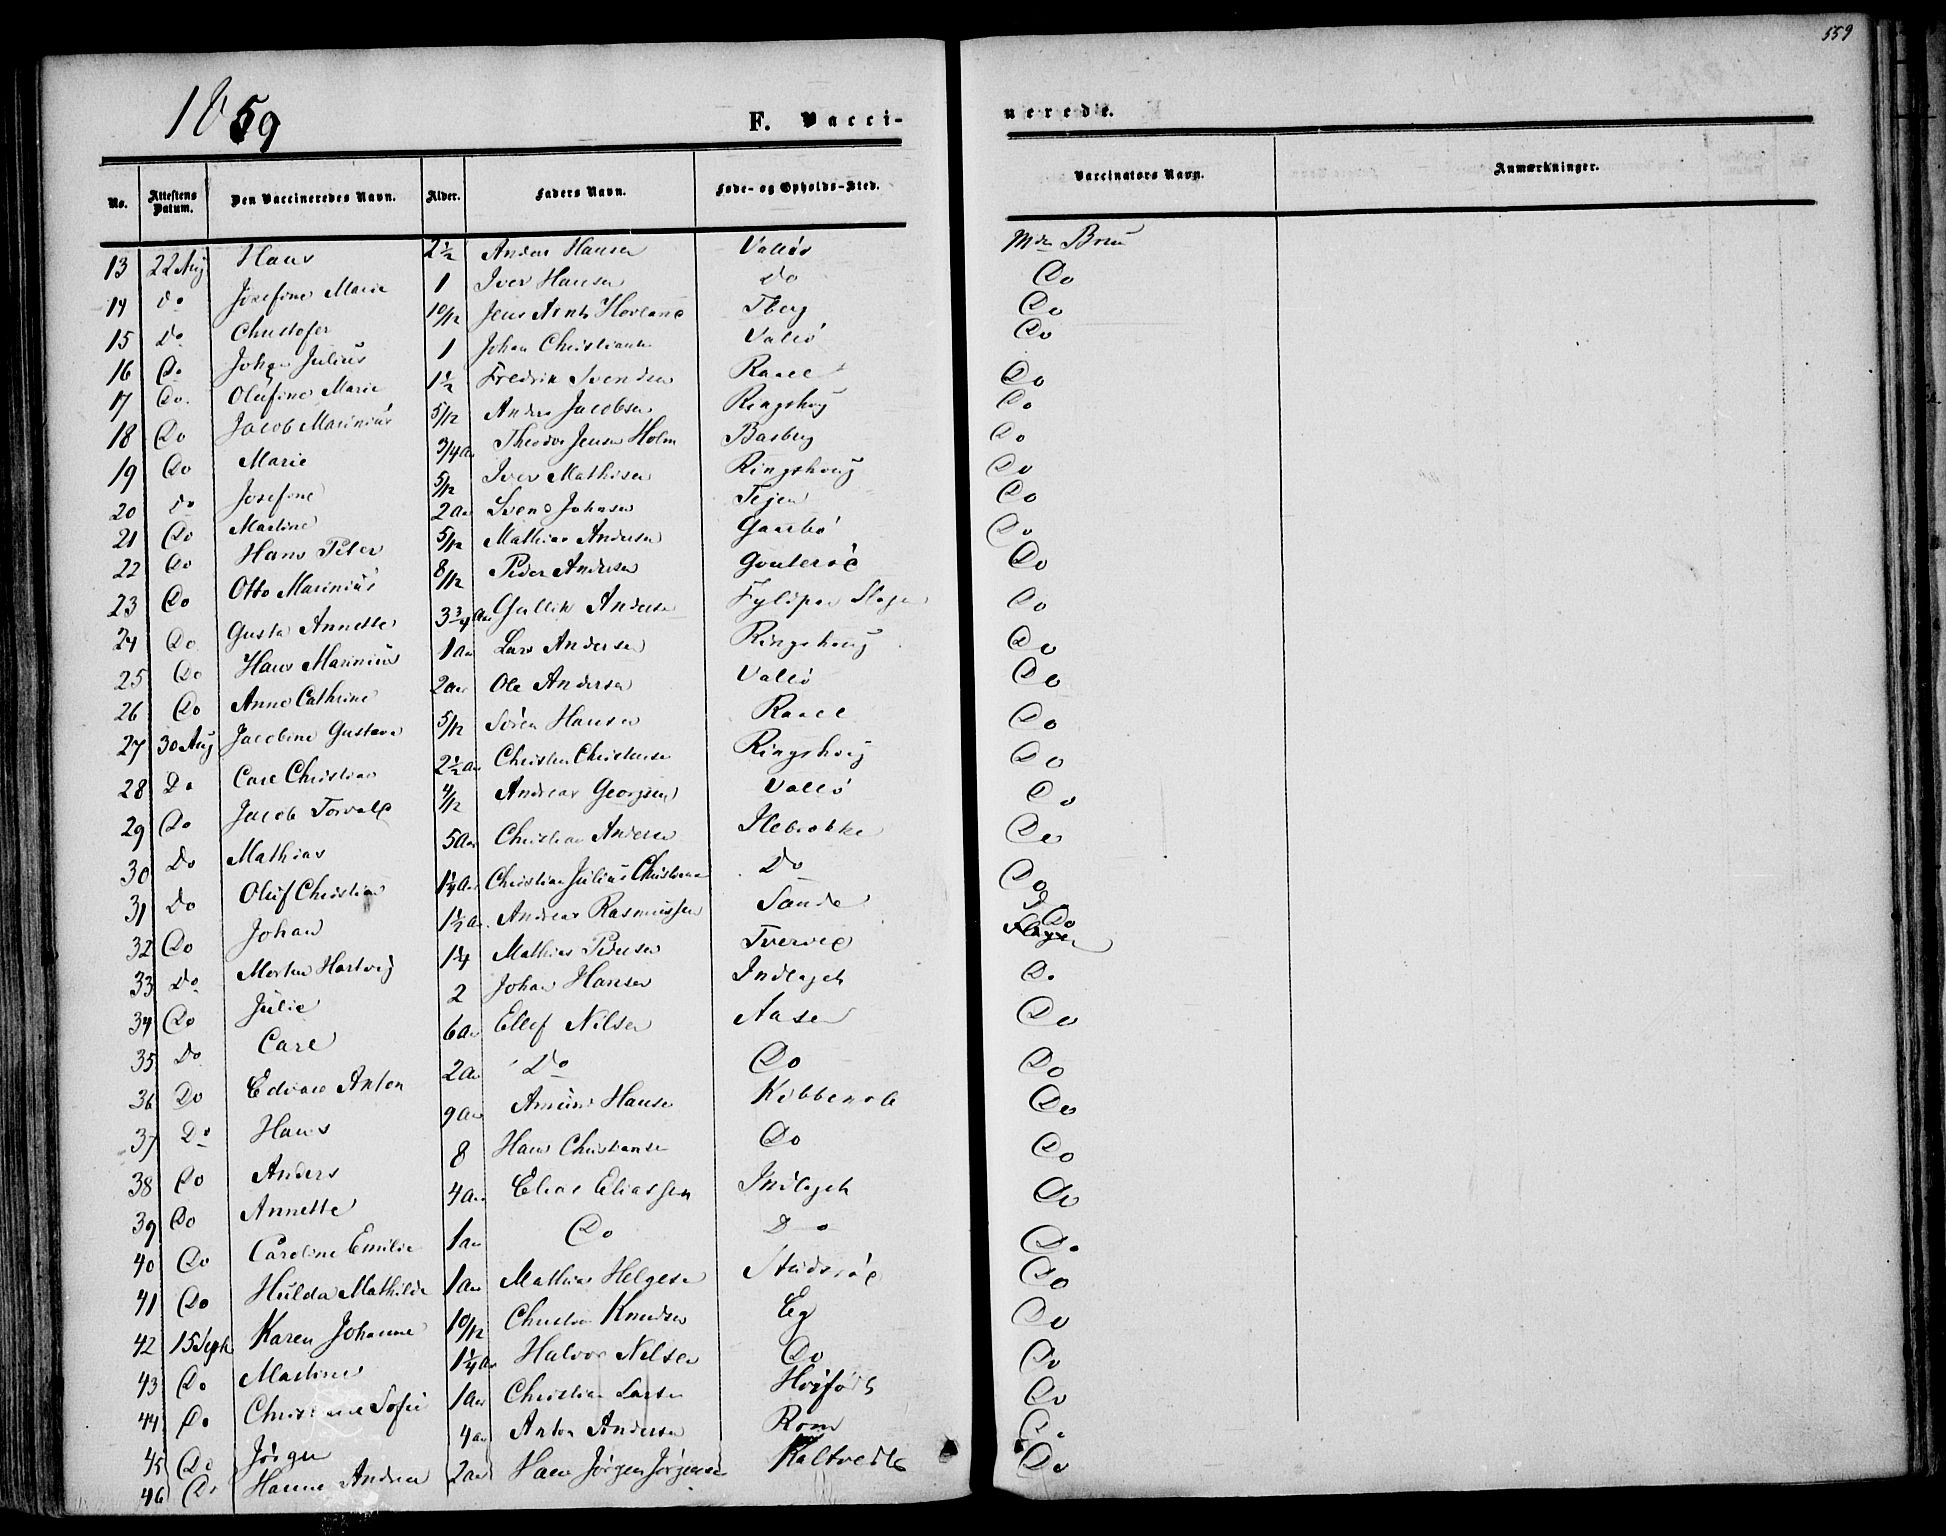 559
1859
F. Vacci-
nerede.
No. Attestens Datum. Den Vaccineredes Navn. Alder. Faders Navn. Føde- og Opholds-Sted. Vaccinators Navn. Anmærkninger.
13 22 Aug Hans 2½ Anders Hansen Vallø
14 Do Josefine Marie 1 Iver Hansen Do Do
15 Do Christofer 10/12 Jens Hovland Do
16 Do Johan Julius 1 Johan Christiansen Vallø Do
17 Do Olufine Marie 1½ Fredrik Svendsen Raael Do
18 Do Jacob Marinius 5/12 Anders Jacobsen Ringshoug Do
19 Do Marie 3/4 aar Theodor Jensen Holm Basberg Do
20 Do Josefine 5/12 Iver Mathisen Ringshoug Do
21 Do Martine 2 aar Svend Johnsen Do
22 Do Hans Peter 5/12 Mathias Andersen Do
23 Do Otto Marinius 8/12 Peder Andersen Do
24 Do Gusta Annette 3¾ aar Gullik Andersen Do
25 Do Hans Marinius 1 aar Lars Andersen Ringshoug Do
26 Do Anne Cathrine 2 aar Ole Andersen Vallø Do
27 30 Aug Jacobine Gustava 5/12 Søren Hansen Raael Do
28 Do Carl Christian 2½ aar Christen Christensen Ringshoug Do
29 Do Jacob Torvald 4/12 Andreas Georgsen Vallø Do
30 Do Mathias 5 aar Christian Andersen Ilebrekke Do
31 Do Oluf Christian 1¼ aar Christian Julius Christiansen Do Do
32 Do Johan 1½ aar Andreas Rasmussen Sande Do
33 Do Morten Hartvig 1¼ Mathias Pedersen Tverved Do
34 Do Julie 2 Johan Hansen Indlaget Do
35 Do Carl 6 aar Ellef Nilsen Aasen Do
36 Do Edvard Anton 2 aar Do Do Do
37 Do Hans 9 aar Amund Hansen Do
38 Do Anders 8 Hans Christiansen Do Do
39 Do Annette 4 aar Elias Eliassen Indlaget Do
40 Do Caroline Emilie 1 aar Do Do Do
41 Do Hulda Mathilde 1 aar Mathias Helgesen Do
42 15 Sept Karen Johanne 10/12 Christen Knudsen Eg Do
43 Do Martine 1¼ aar Halvor Nilsen Do Do
44 Do Christiane Sofie 1 aar Christian Larsen Do
45 Do Jørgen 4 aar Anton Andersen Rom Do
46 Do Hanne Andrea 2 aar Hans Jørgen Jørgensen Kaltvedt Do